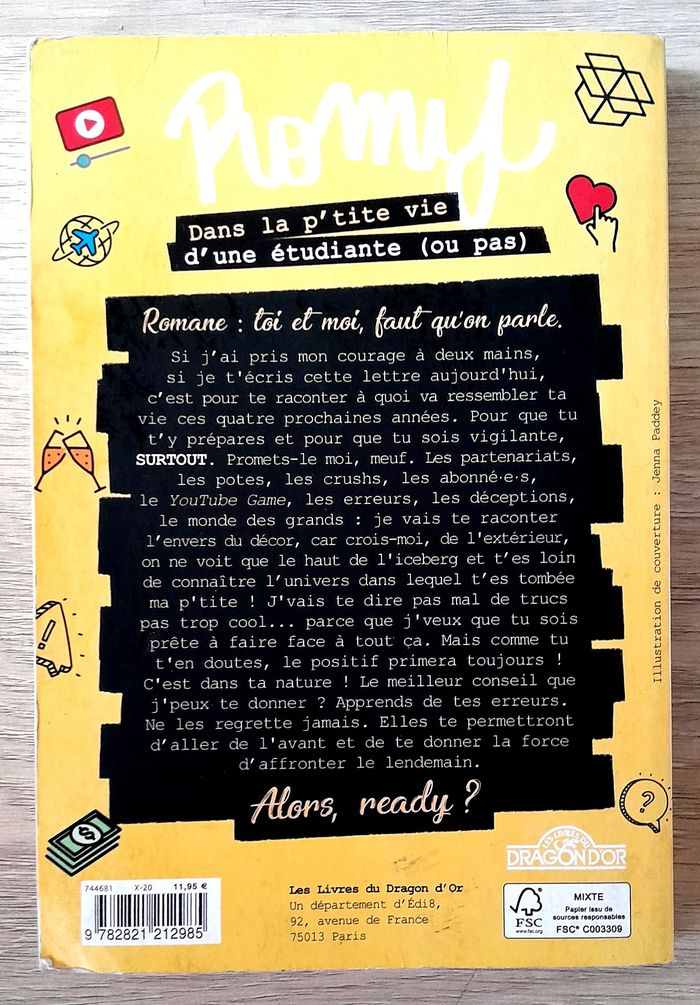 Romy
Dans la p'tite vie
d'une étudiante (ou pas)
Romane : toi et moi, faut qu'on parle.
Si j'ai pris mon courage à deux mains,
si je t'écris cette lettre aujourd'hui,
c'est pour te raconter à quoi va ressembler ta
vie ces quatre prochaines années. Pour que tu
t'y prépares et pour que tu sois vigilante,
SURTOUT. Promets-le moi, meuf. Les partenariats,
les potes, les crushs, les abonné·e·s,
le YouTube Game, les erreurs, les déceptions,
le monde des grands : je vais te raconter
l'envers du décor, car crois-moi, de l'extérieur,
on ne voit que le haut de l'iceberg et t'es loin
de connaître l'univers dans lequel t'es tombée
ma p'tite ! J'vais te dire pas mal de trucs
pas trop cool... parce que j'veux que tu sois
prête à faire face à tout ça. Mais comme tu
t'en doutes, le positif primera toujours !
C'est dans ta nature ! Le meilleur conseil que
j'peux te donner ? Apprends de tes erreurs.
Ne les regrette jamais. Elles te permettront
d'aller de l'avant et de te donner la force
d'affronter le lendemain.
Alors, ready ?
Illustration de couverture : Jenna Paddey
LES LIVRES DU
DRAGON D'OR
744681 X-20 11,95 €
9 782821 212985
Les Livres du Dragon d'Or
Un département d'Édi8,
92, avenue de France
75013 Paris
FSC
www.fsc.org
MIXTE
Papier issu de
sources responsables
FSC® C003309